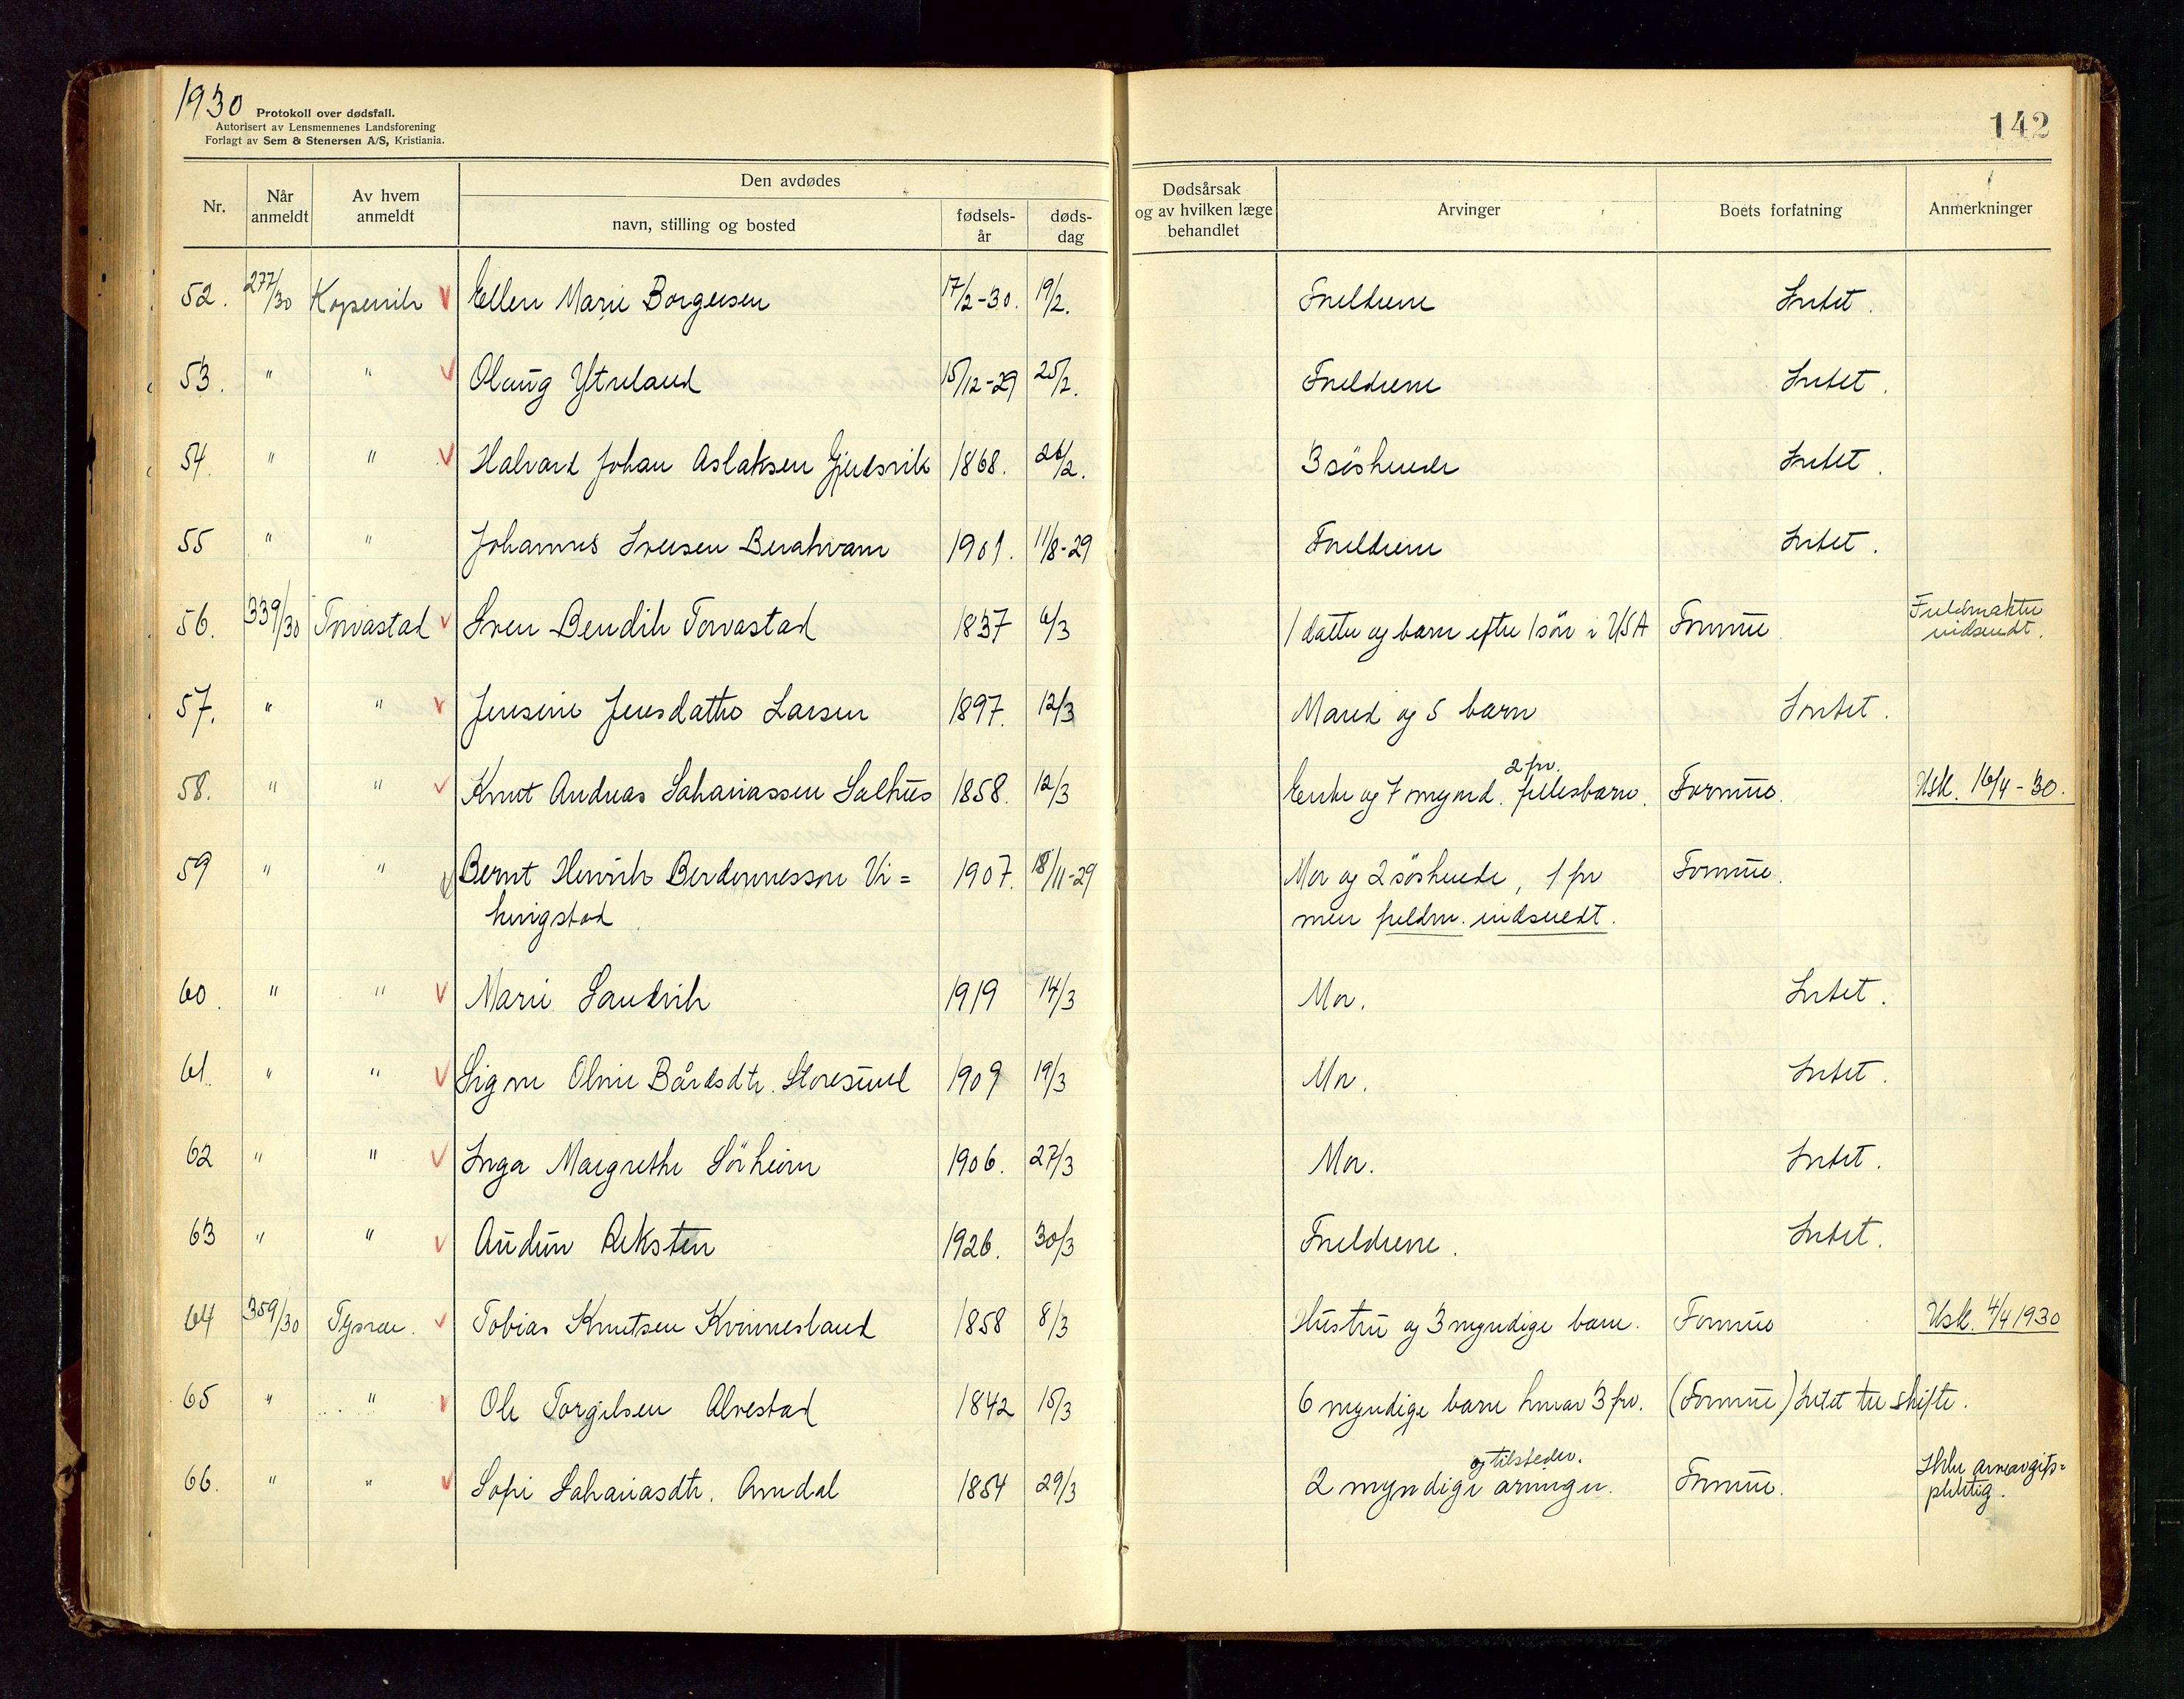 1930
Protokoll over dødsfall.
Autorisert av Lensmennenes Landsforening
Forlagt av Sem & Stenersen A/S, Kristiania.
142
Nr. Når anmeldt Av hvem anmeldt Den avdødes navn, stilling og bosted fødsels-år døds-dag Dødsårsak og av hvilken læge behandlet Arvinger Boets forfatning Anmerkninger
52. 277/30 Kopervik v Ellen Marie Borgersen 17/2-30. 19/2. Foreldrene Intet.
53. " " v Olaug Ytreland 15/12-29 25/2. Foreldrene Intet.
54. " " v Halvard Johan Aslaksen Gjerdsvik 1868. 26/2. 3 søskende Intet.
55 " " Johannes Iversen 1901. 11/8-29 Foreldrene Intet.
56. 339/30 Torvastad v Sven Bendik Torvastad 1837 6/3 1 datter og barn efter 1 søn i USA Formue Fuldmakter
indsendt.
57. " " v Jensine Jensdatter Larsen 1897. 12/3 Mand og 5 barn Intet.
2 frv.
58. " " v Knut Andreas Sakariassen Salhus 1858. 12/3 Enke og 7 mynd. fellesbarn. Formue. Usk. 16/4-30.
59 " " v Bernt Henrik Berdinessen Vi= 1907. 18/11-29 Mor og 2 søskende, 1 frv Formue.
kingstad men fuldm. indsendt.
60. " " v Marie Sandvik 1919 14/3 Mor. Intet.
61. " " v Signe Oline Bårdsdtr. Storesund 1909 19/3 Mor. Intet.
62 " " v Inga Margrethe Sörheim 1906. 27/3 Mor. Intet.
63 " " v Audun Reksten 1926. 30/3 Foreldrene. Intet.
64 359/30 Tysvær. v Tobias Knutsen Kvinnesland 1858 8/3 Hustru og 3 myndige barn. Formue Usk. 4/4 1930
65 " " v Ole Torgilsen Alvestad 1842 15/3 6 myndige barn hvorav 3 frv. (Formue) Intet til skifte.
og tilsteder.
66. " " v Sofie Sakariasdtr. Amdal 1854 29/3 2 myndige arvinger. Formue. Ikke arveavgifts=
pliktig.